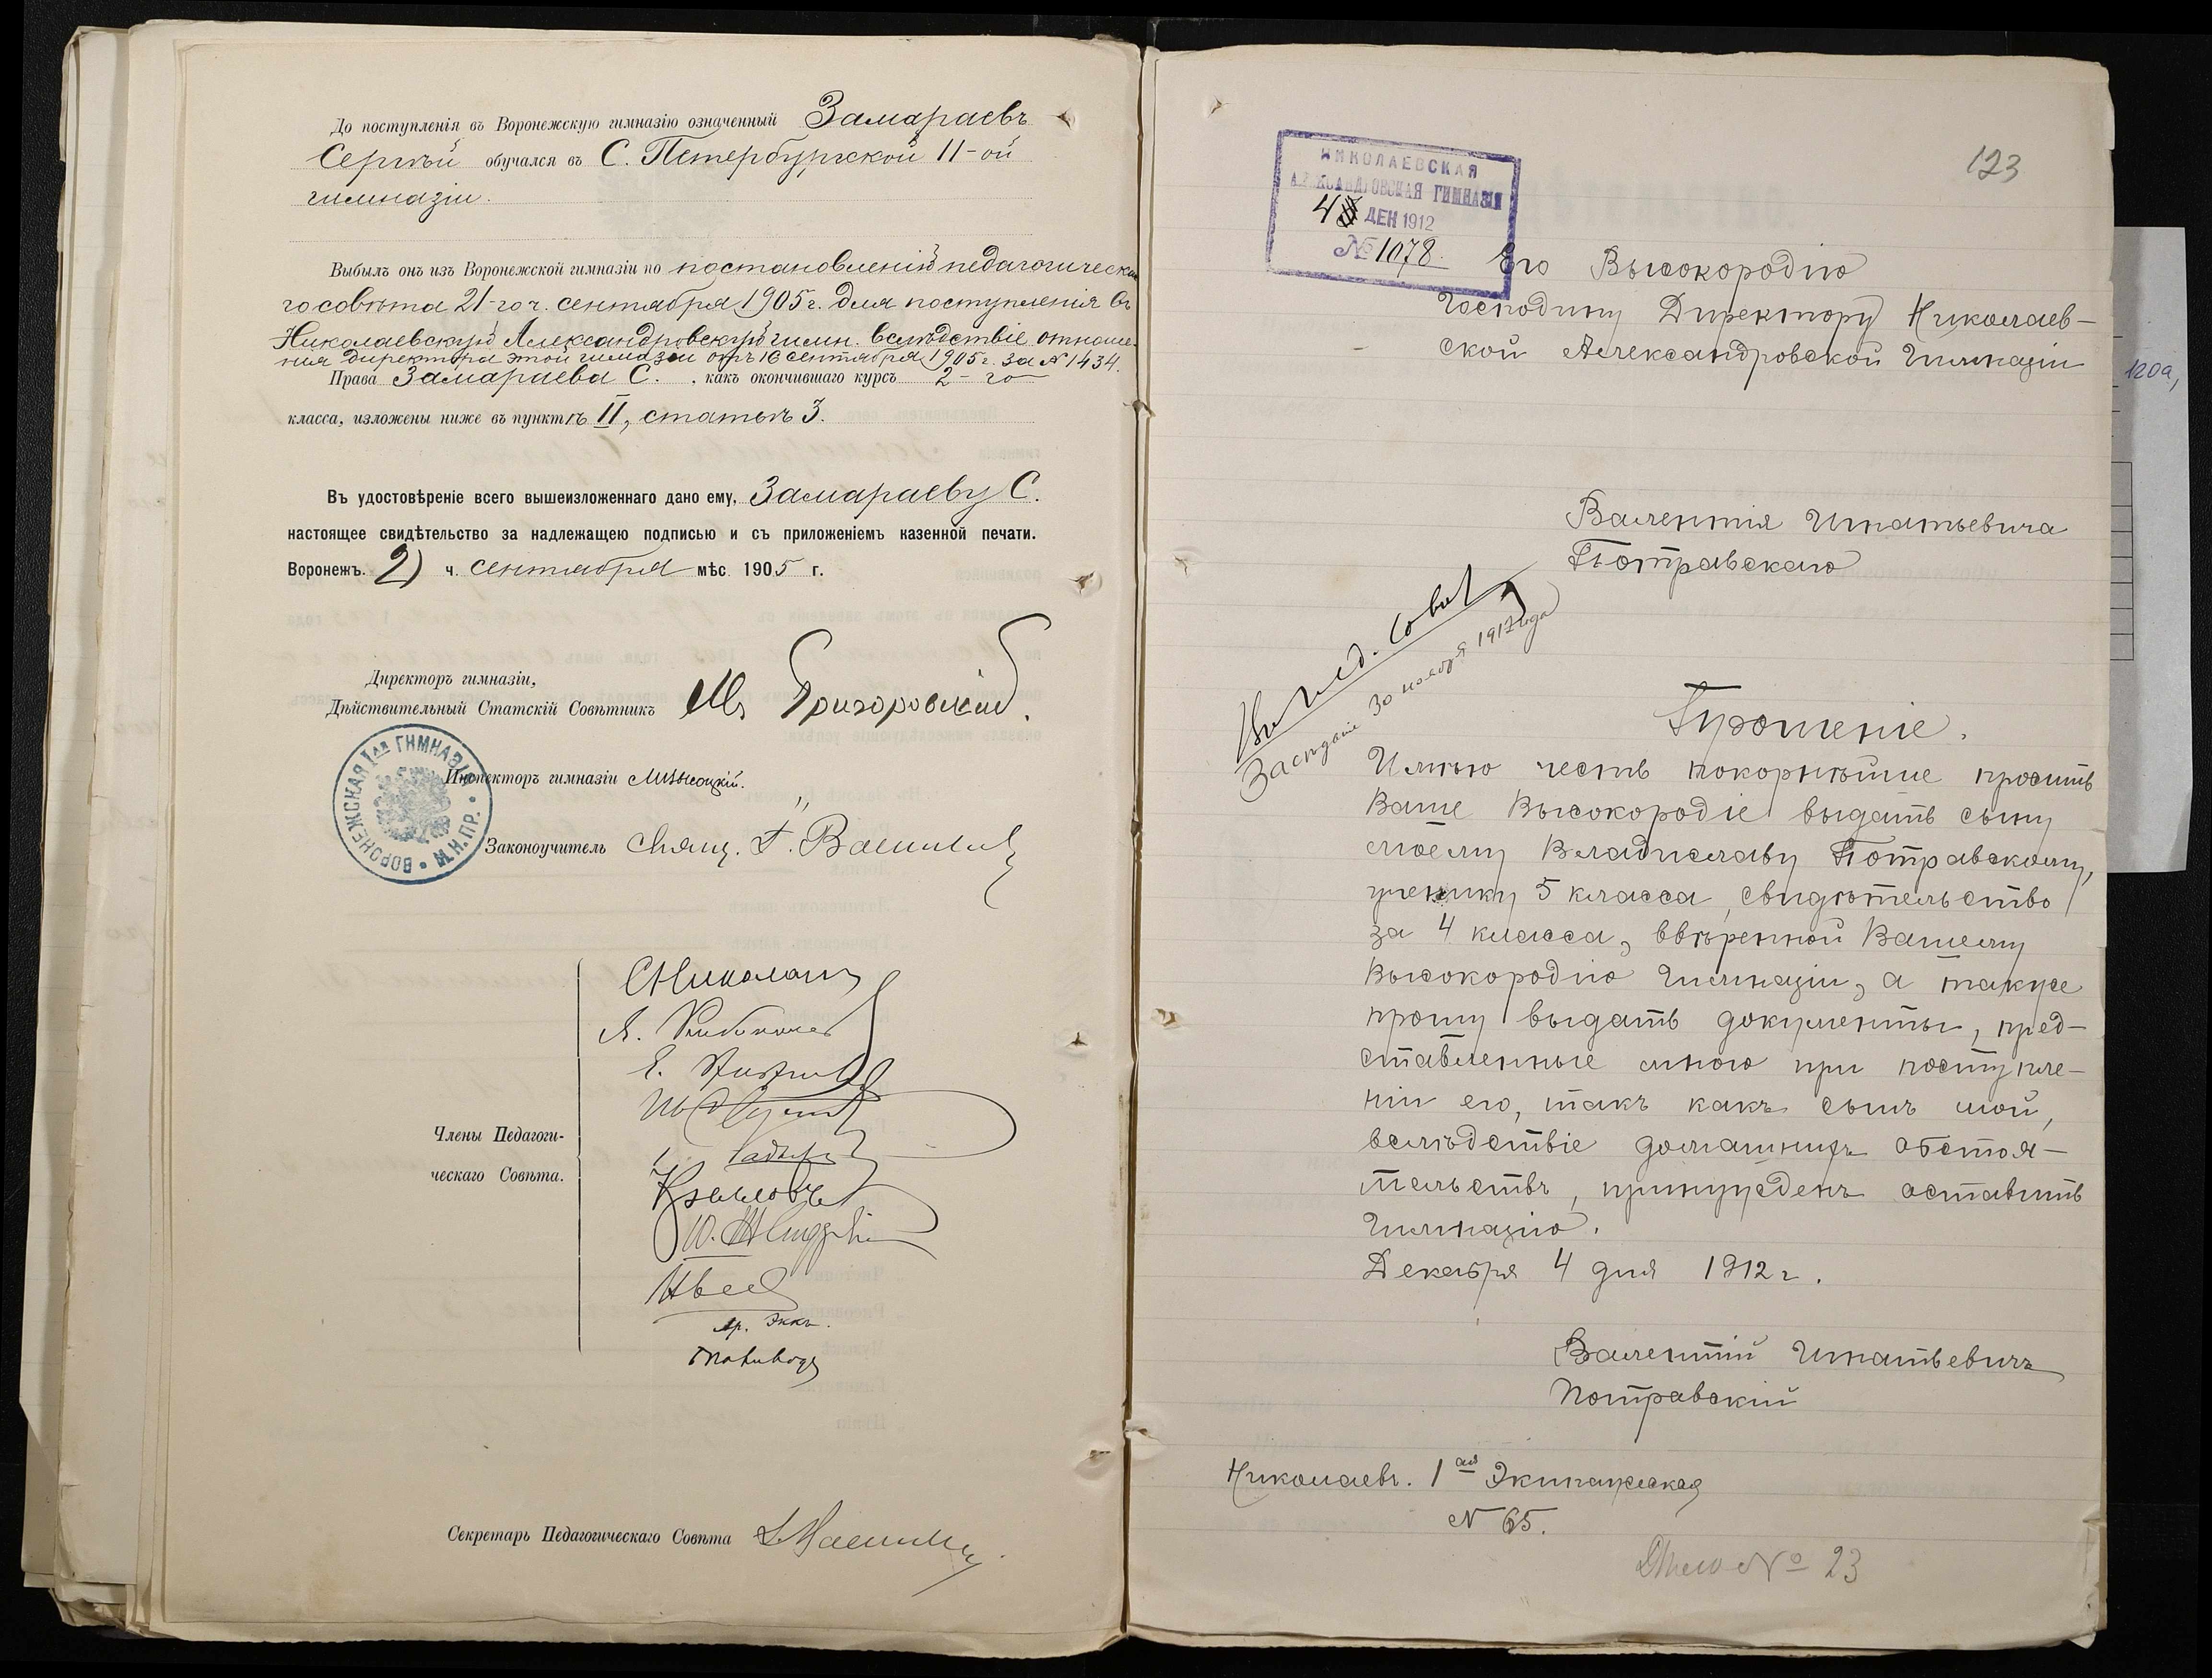 До поступленія въ Воронежскую гимназію означенный Замараевъ
Сергѣй обучался въ С. Петербургской 11-ой
гимназіи.
Выбылъ онъ изъ Воронежской гимназіи по постановленію педагогическа
го совѣта 21-го ч. сентября 1905 г. для поступленія въ
Николаевскую Александровскую гимн. вслѣдствіе отноше-
нія директора этой гимназіи отъ 16 сентября 1905 г. за № 1434.
Права Замараева С. , какъ окончившаго курсъ 2-го
класса, изложены ниже въ пунктѣ II, статьѣ 3.
Въ удостовѣреніе всего вышеизложеннаго дано ему, Замараеву С.
настоящее свидѣтельство за надлежащею подписью и съ приложеніемъ казенной печати.
Воронежъ. 21 ч. сентября мѣс. 1905 г.
Директоръ гимназіи,
Дѣйствительный Статскій Совѣтникъ М. Григоровскій.
ВОРОНЕЖСКАЯ 1ая ГИМНАЗІЯ М.Н.ПР.
Инспекторъ гимназіи
Законоучитель Свящ. Г. Васильевъ
Члены Педагоги-
ческаго Совѣта.
Секретарь Педагогическаго Совѣта
123
НИКОЛАЕВСКАЯ
АЛЕКСАНДРОВСКАЯ ГИМНАЗІЯ
4 ДЕК 1912
№ 1078.
Его Высокородію
Господину Директору Николаев-
ской Александровской Гимназіи
120а,
Валентія Игнатьевича
Потравскаго
Въ пед. совѣт
Засѣданіе 30 ноября 1912 года
Прошеніе.
Имѣю честь покорнѣйше просить
Ваше Высокородіе выдать сыну
моему Владиславу Потравскому,
ученику 5 класса, свидѣтельство
за 4 класса, ввѣренной Вашему
Высокородію Гимназіи, а также
прошу выдать документы, пред-
ставленные мною при поступле-
ніи его, такъ какъ сынъ мой,
вслѣдствіе домашнихъ обстоя-
тельствъ, принужденъ оставить
Гимназію.
Декабря 4 дня 1912 г.
Валентій Игнатьевичъ
Потравскій
Николаевъ. 1ая Экипажеская
№ 65.
Дѣло № 23